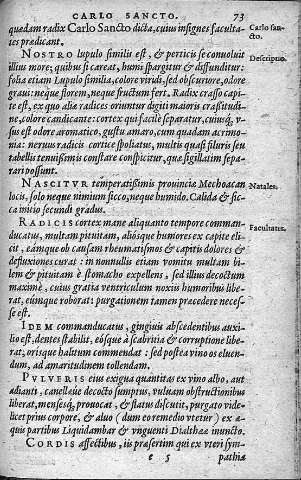 CARLO SANCTO. 73
quædam radix Carlo Sancto dicta, cuius insignes faculta-
tes prædicant.
Carlo san-
cto.
NOSTRO lupulo similis est, & perticis se conuoluit
illius more; quibus si careat, humi spargitur & diffunditur:
folia etiam Lupulo similia, colore viridi, sed obscuriore, odore
graui: neque florem, neque fructum fert. Radix crasso capi-
te est, ex quo aliæ radices oriuntur digiti maioris crassitudi-
ne, colore candicante: cortex qui facile separatur, cuiusq́; v-
sus est odore aromatico, gustu amaro, cum quadam acrimo-
nia: neruus radicis cortice spoliatus, multis quasi filuris seu
tabellis tenuissimis constare conspicitur, quæ sigillatim sepa-
rari possunt.
Descriptio.
NASCITVR temperatissimis prouinciæ Mechoacan
locis, solo neque nimium sicco, neque humido. Calida & sic-
ca initio secundi gradus.
Natales.
RADICIS cortex mane aliquanto tempore comman-
ducatus, multam pituitam, aliósque humores ex capite eli-
cit, eámque ob causam rheumatismos & capitis dolores &
defluxiones curat: in nonnullis etiam vomitu multam bi-
lem & pituitam è stomacho expellens, sed illius decoctum
maximè, cuius gratia ventriculum noxiis humoribus libe-
rat, eúmque roborat: purgationem tamen præcedere neces-
se est.
Facultates.
IDEM commanducatus, gingiuis abscedentibus auxi-
lio est, dentes stabilit, eósque à scabritia & corruptione libe-
rat, orisque halitum commendat: sed postea vino os eluen-
dum, ad amaritudinem tollendam.
PVLVERIS eius exigua quantitas ex vino albo, aut
adianti, canellæue decocto sumptus, vuluam obstructionibus
liberat, mensesq́; prouocat, & flatus discutit, purgato vide-
licet prius corpore, & aluo (dum eo remedio vtetur) ex a-
quis partibus Liquidambar & vnguenti Dialthææ inuncto.
CORDIS affectibus, iis præsertim qui ex vteri sym-
e 5 pathia